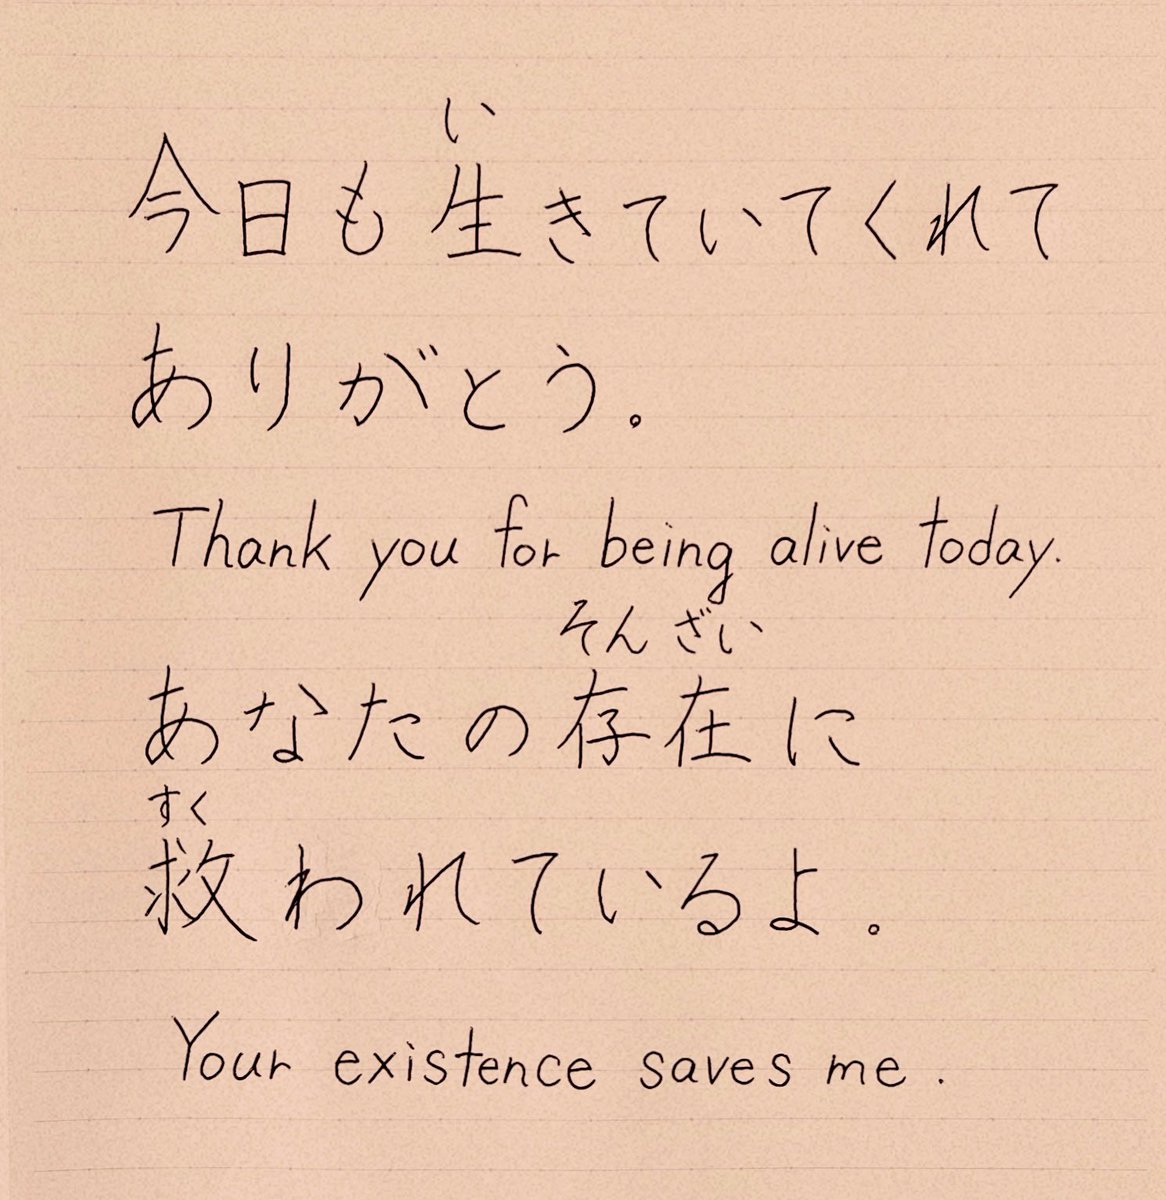 い
今日も生きていてくれて
ありがとう。
Thank you for being alive today.
そんざい
あなたの存在に
すく
救われているよ。
Your existence saves me.